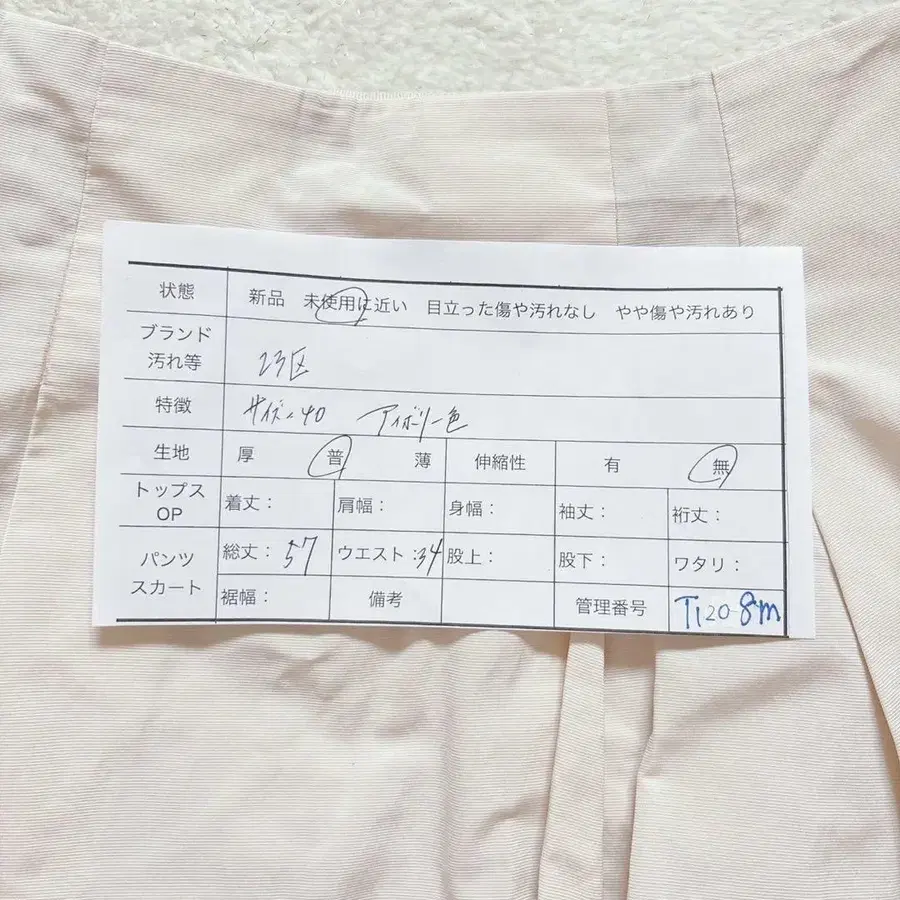 状態 新品 未使用に近い 目立った傷や汚れなし やや傷や汚れあり
ブランド
汚れ等 23区
特徴 サイズ:40 アイボリー色
生地 厚 普 薄 伸縮性 有 無
トップス
OP 着丈: 肩幅: 身幅: 袖丈: 裄丈:
パンツ
スカート 総丈:57 ウエスト:34 股上: 股下: ワタリ:
裾幅: 備考 管理番号 T120-8m